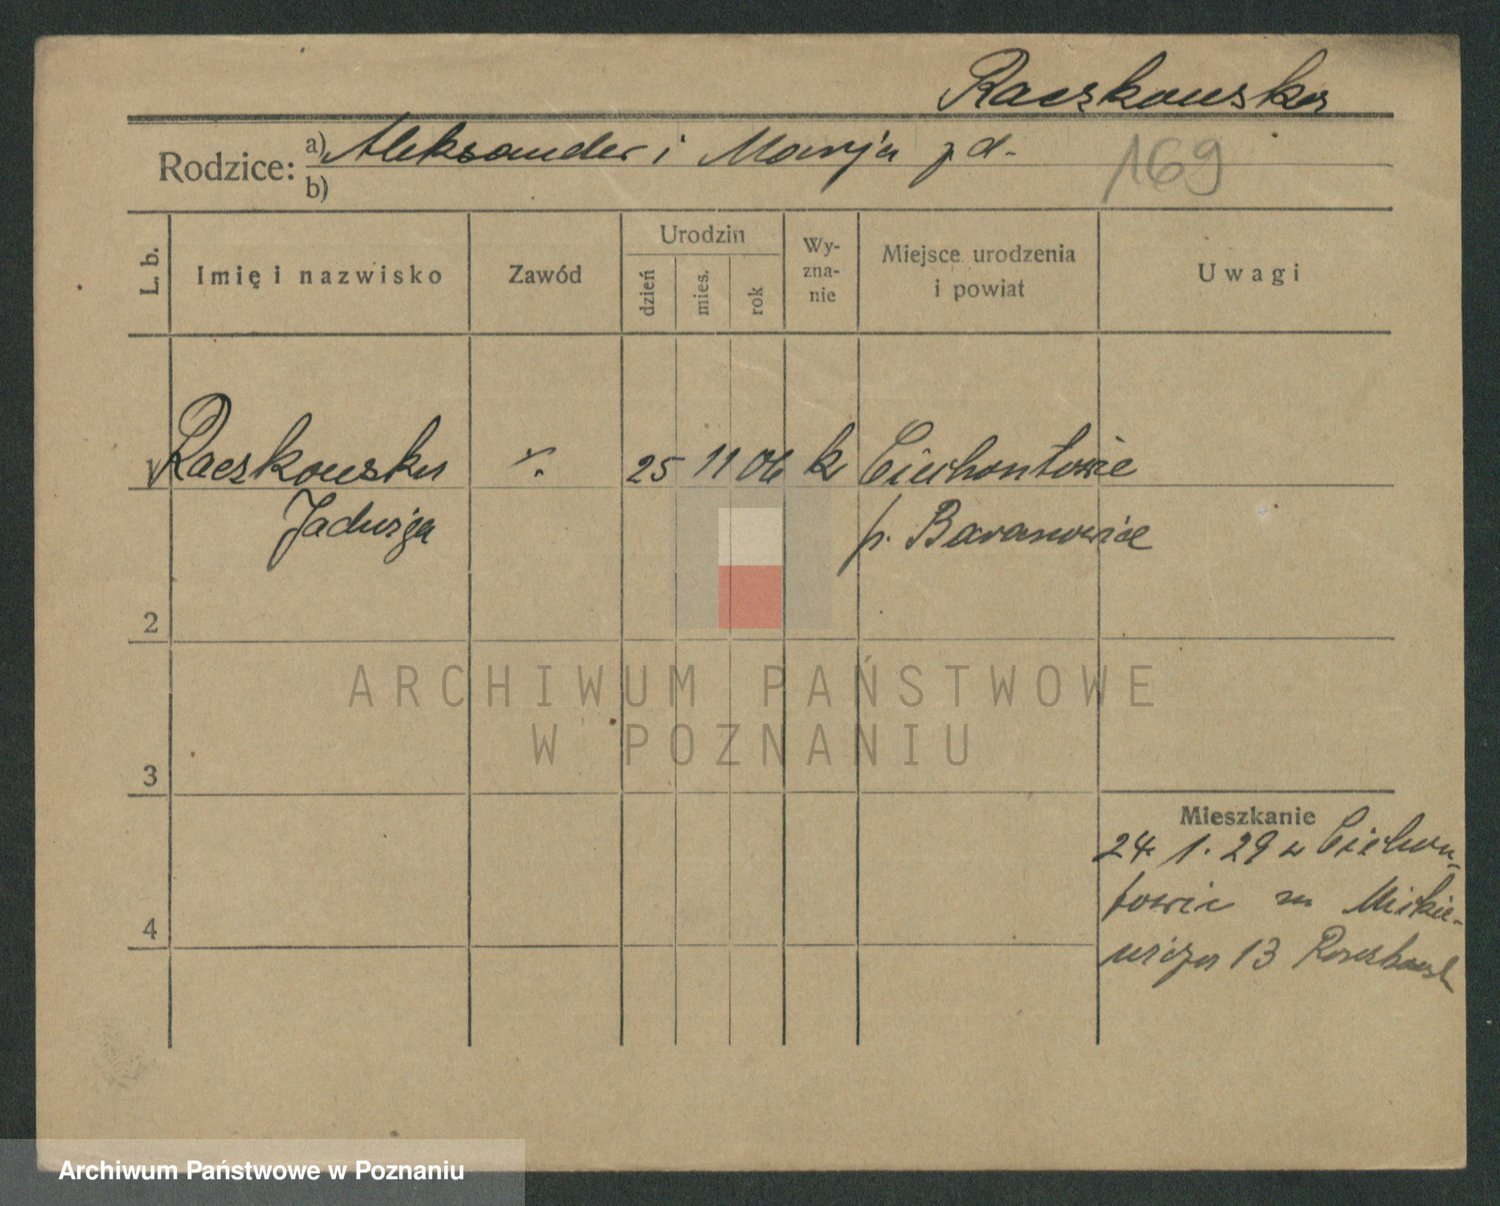 Raczkowska
Rodzice: a) Aleksander i Marja zd.
b)
169
L. b.
Imię i nazwisko
Zawód
Urodzin
dzień
mies.
rok
Wy-
zna-
nie
Miejsce urodzenia
i powiat
Uwagi
1 Raczkowska ·/. 25 11 06 k Ciechontowie
Jadwiga p. Baranowice
2
3
4
Mieszkanie
24. 1. 29 z Ciechon-
towic Mickie-
wicza 13
ARCHIWUM PAŃSTWOWE
W POZNANIU
Archiwum Państwowe w Poznaniu